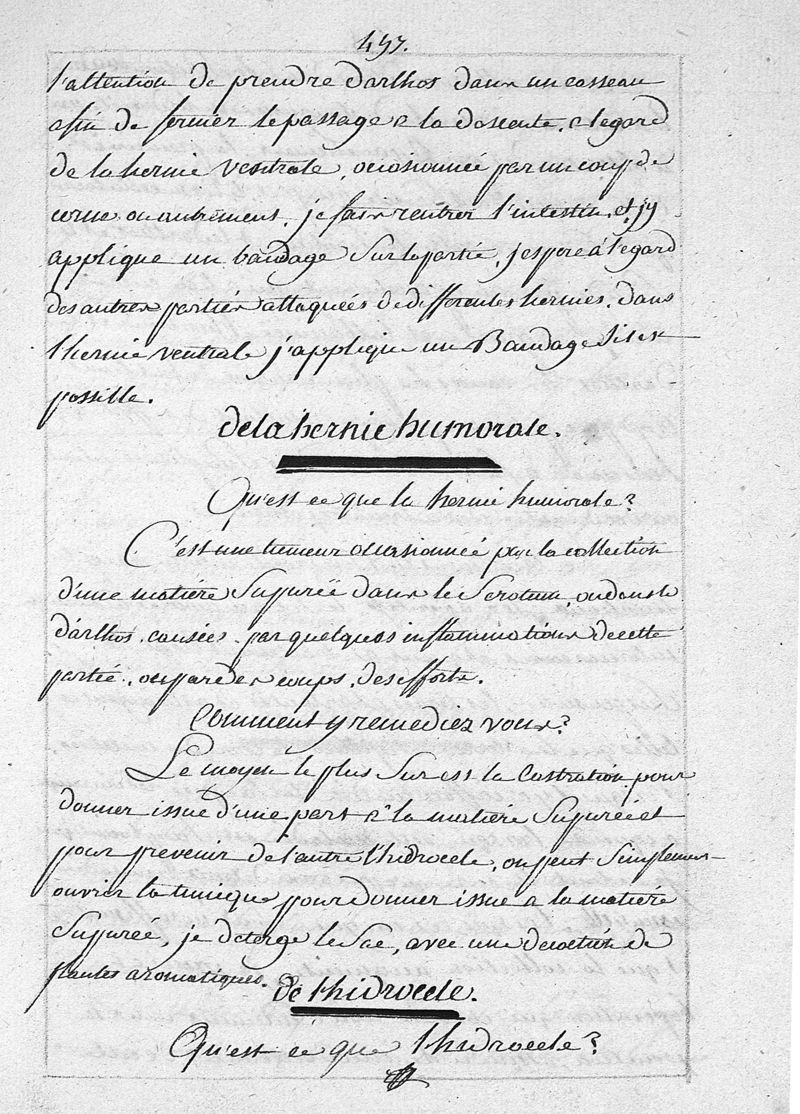 457.
l'attention de prendre d'arthos dans un casseau
afin de fermer le passage a la descente. a legard
de la hernie ventrale, occasionnée par un coup de
corne ou autrement. je fais rentrer l'intestin, et jy
applique un bandage sur la partie, j'espere à l'egard
des autres parties attaqueés de differentes hernies. dans
l'hernie ventrale j'applique un Bandage s'il est
possible.
de la hernie humorale.
Qu'est ce que la hernie humorale?
C'est une tumeur occasionneé par la collection
d'une matiére supureë dans le scrotum, ou dans le
d'arthos. causeés par quelques inflammations de cette
partie, ou par des coups, des efforts.
Comment y remediez vous?
Le moyen le plus sur est la Castration pour
donner issue d'une part a la matiere supureé et
pour prevenir de l'autre l'hidrocele, on peut simplement
ouvrir la tunique pour donner issue a la matiere
supureé, je deterge le sac, avec une decoction de
plantes aromatiques.
de l'hidrocele.
Qu'est ce que l'hidrocele?